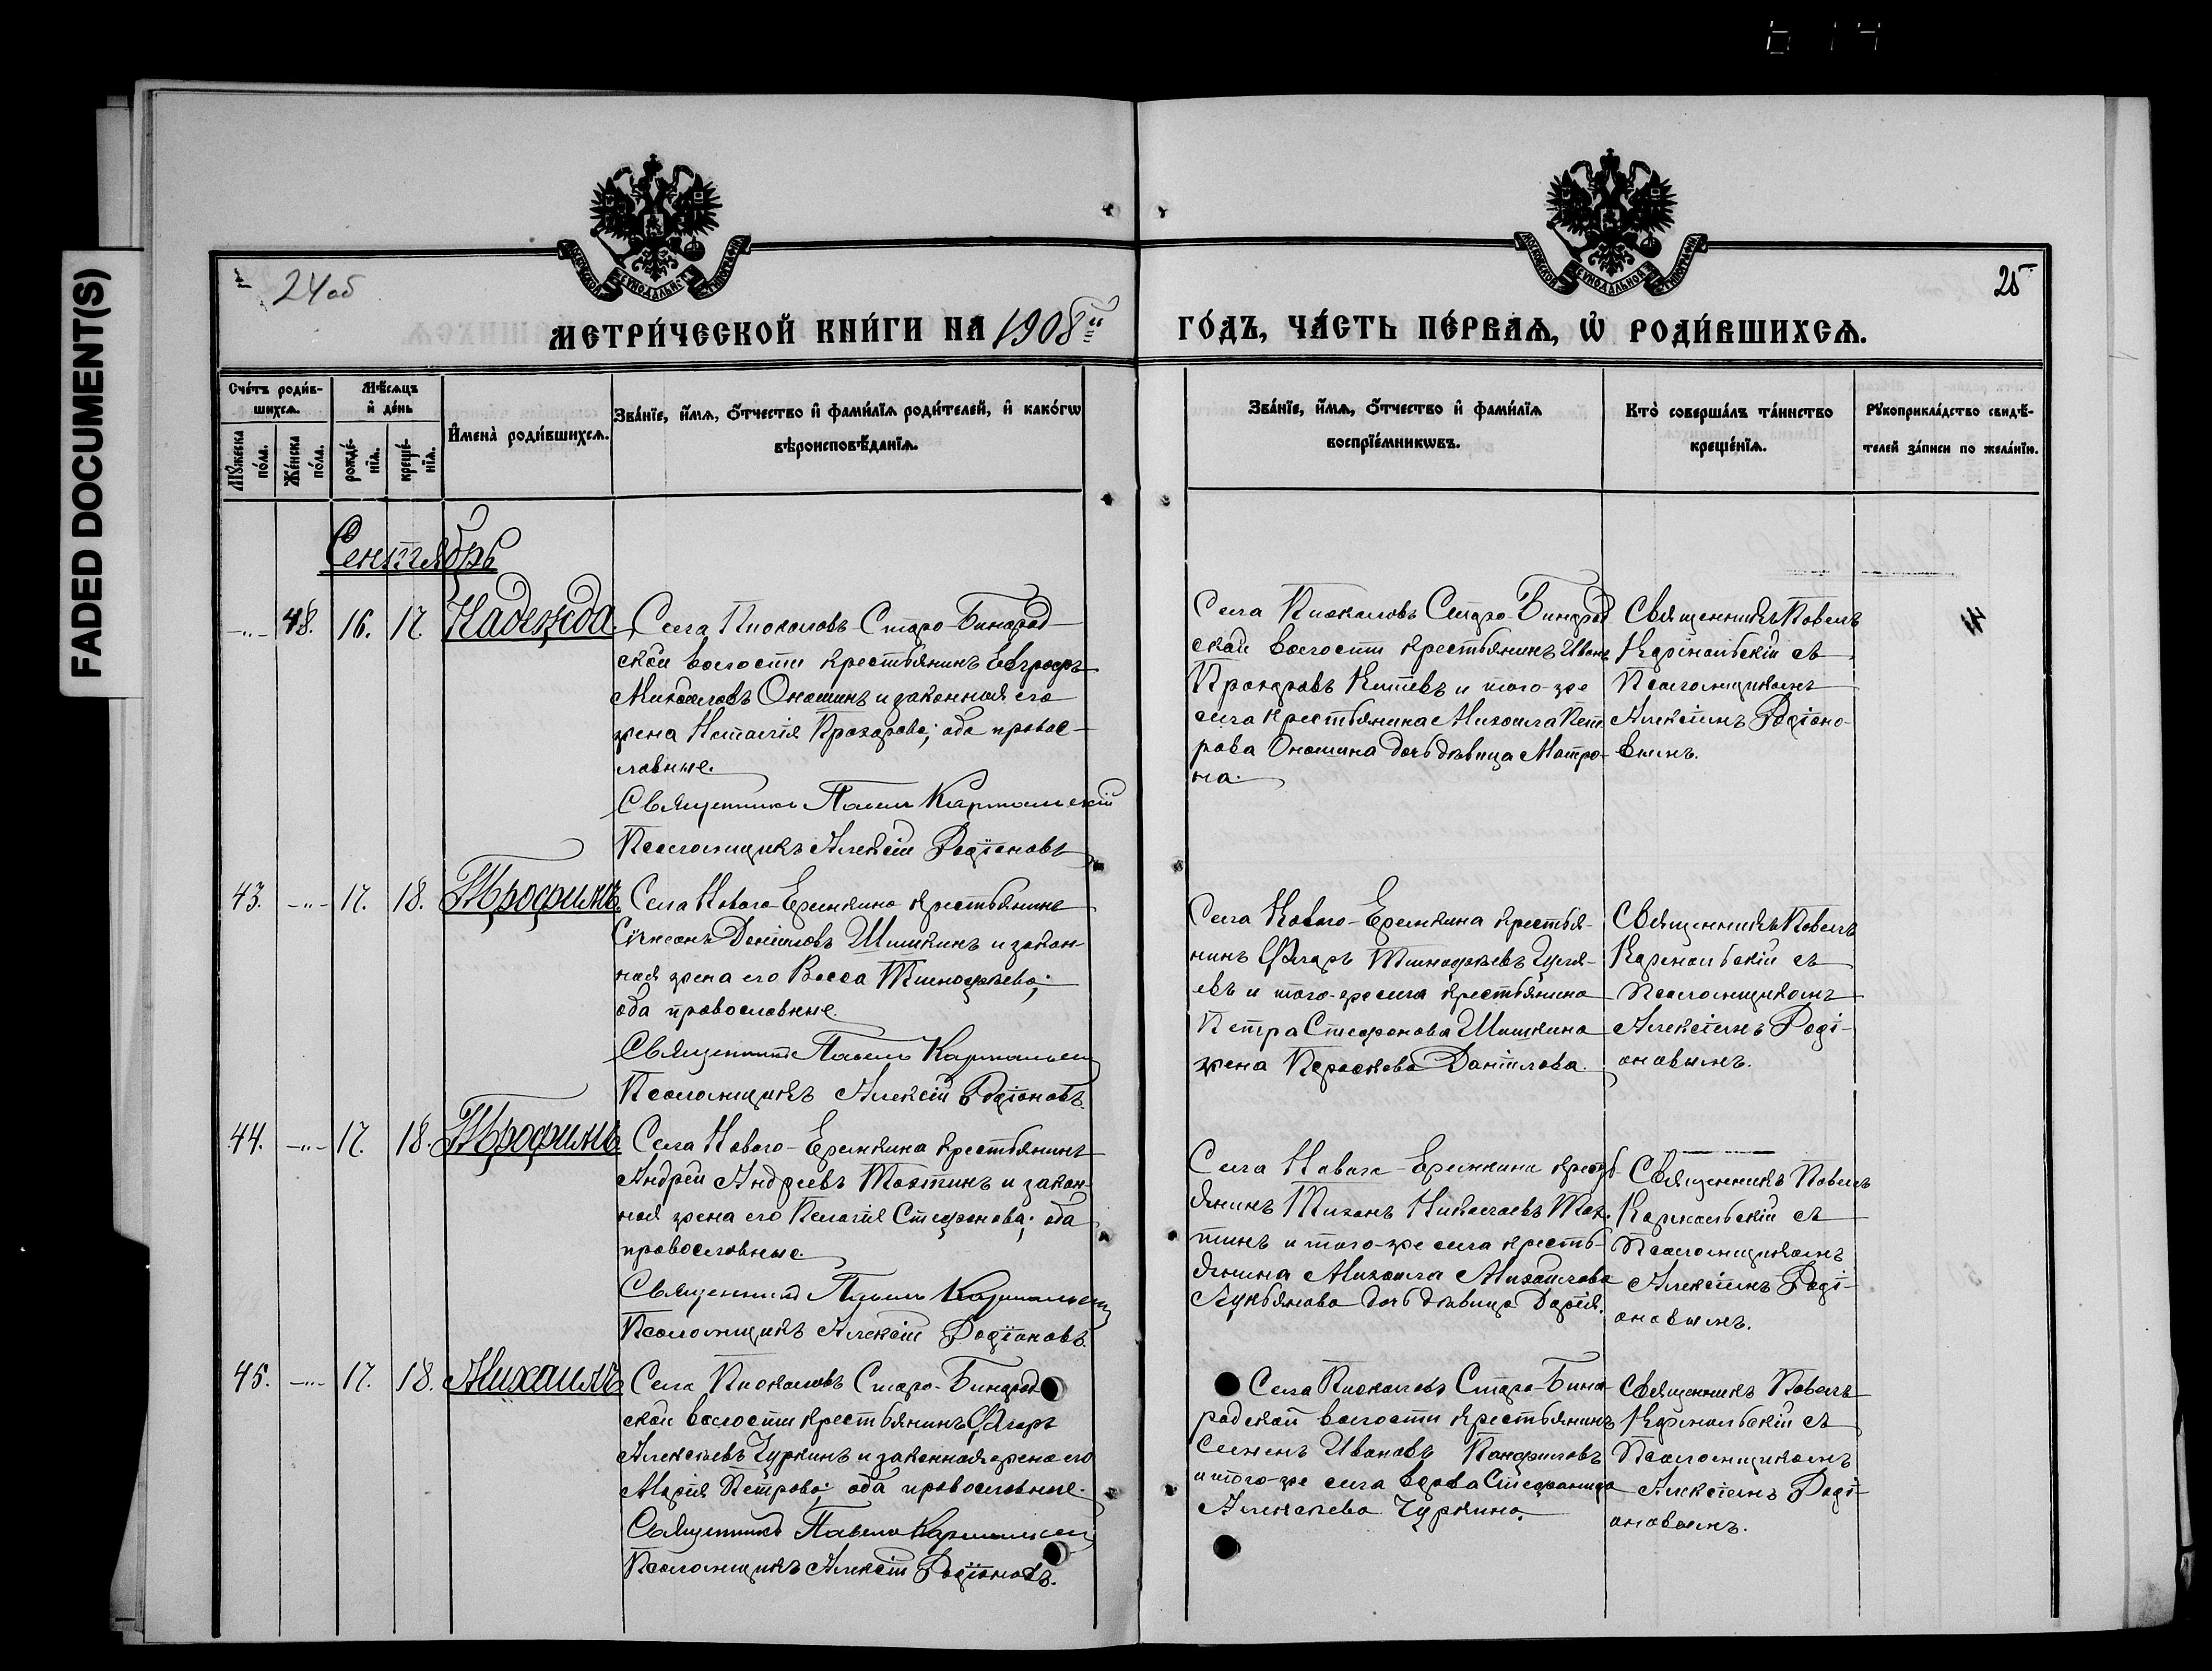 FADED DOCUMENT(S)
24об
25
МЕТРИ́ЧЕСКОЙ КНИ́ГИ НА 1908й
ГО́ДЪ, ЧА́СТЬ ПЕ́РВАѦ, Ѡ҆ РОДИ́ВШИХСѦ.
Сче́тъ роди́в-
шихсѧ.
Мѣ́сѧцъ
и҆ де́нь
Мꙋ́жеска
по́ла.
Же́нска
по́ла.
рожде́-
нїѧ.
креще́-
нїѧ.
И҆мена̀ роди́вшихсѧ.
Зва́нїе, и҆́мѧ, ѻ҆́тчество и҆ фами́лїѧ роди́телей, и҆ како́гѡ
вѣроисповѣ́данїѧ.
Зва́нїе, и҆́мѧ, ѻ҆́тчество и҆ фами́лїѧ
воспрїе́мникѡвъ.
Кто̀ соверша́лъ та́инство
креще́нїѧ.
Рꙋкоприкла́дство свидѣ́-
телей за́писи по жела́нїю.
Сентябрь
48. 16. 17. Надежда
Села Пискаловъ Старо-Бинарад-
ской волости крестьянинъ Евграфъ
Михаиловъ Оношинъ и законная его
жена Наталія Прохорова; оба правос-
лавные.
Священникъ Павелъ Каринальскій
Псаломщикъ Алексій Родіоновъ
Села Пискаловъ Старо-Бинарад
ской волости крестьянинъ Иванъ
и того-же
села крестьянина Михаила Пет
рова Оношина дочь дѣвица Матро-
на.
Священникъ Павелъ
Каринальскій съ
Псаломщикомъ
Алексіемъ Родіоно-
вымъ.
43. 17. 18. Трофимъ
Села Новаго-Еремкина крестьянинъ
Сѵмеонъ Даніиловъ Шишкинъ и закон-
ная жена его Васса Тимофеева;
оба православные.
Священникъ Павелъ Каринальскій
Псаломщикъ Алексій Родіоновъ.
Села Новаго-Еремкина крестья-
нинъ Ѳедоръ Тимофеевъ
евъ и того-же села крестьянина
Петра Стефанова Шишкина
жена Параскева Даніилова.
Священникъ Павелъ
Каринальскій съ
Псаломщикомъ
Алексіемъ Роді-
оновымъ.
44. 17. 18. Трофимъ
Села Новаго-Еремкина крестьянинъ
Андрей Андреевъ Тахтинъ и закон-
ная жена его Пелагія Стефанова; оба
православные.
Священникъ Павелъ Каринальскій
Псаломщикъ Алексій Родіоновъ.
Села Новаго-Еремкина кресть
янинъ Тихонъ Николаевъ Тах-
тинъ и того-же села кресть-
янина Михаила Михаилова
Лукьянова дочь дѣвица Дарія.
Священникъ Павелъ
Каринальскій съ
Псаломщикомъ
Алексіемъ Роді-
оновымъ.
45. 17. 18. Михаилъ
Села Пискаловъ Старо-Бинарад
ской волости крестьянинъ Ѳедоръ
Алексѣевъ Чуркинъ и законная жена его
Марія Петрова; оба православные.
Священникъ Павелъ Каринальскій
Псаломщикъ Алексій Родіоновъ.
Села Пискаловъ Старо-Бина-
радской волости крестьянинъ
Семенъ Ивановъ Панфиловъ
и того-же села вдова Стефанида
Алексѣева Чуркина.
Священникъ Павелъ
Каринальскій съ
Псаломщикомъ
Алексіемъ Роді-
оновымъ.